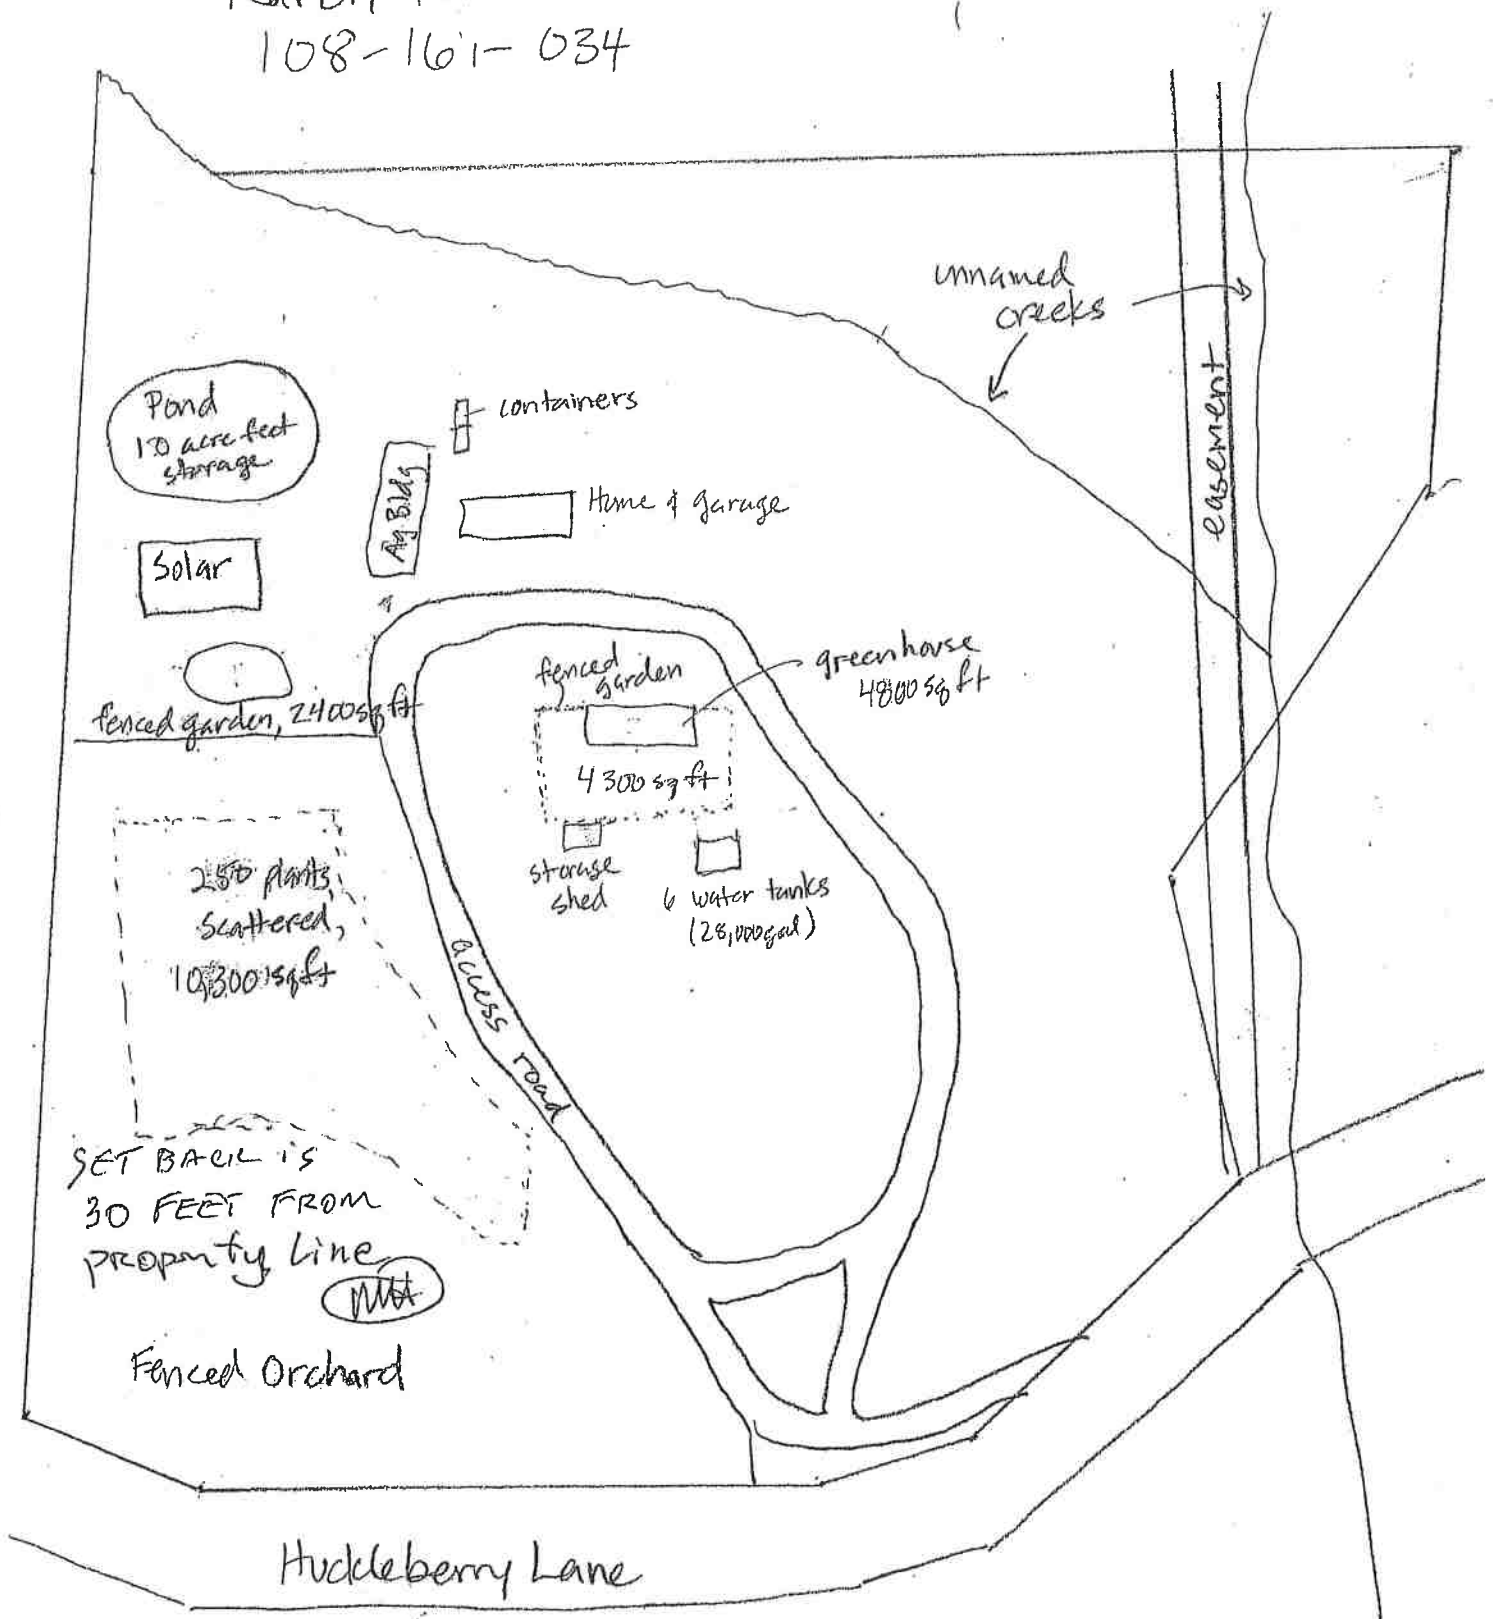 108-161-034
unnamed
creeks
easement
Pond
1.0 acre feet
storage
containers
Ag Bldg
Home & garage
Solar
fenced garden, 2400 sq ft
fenced
garden
greenhouse
4800 sq ft
4300 sq ft
storage
shed
6 water tanks
(28,000 gal)
250 plants,
scattered,
10,300 sq ft
access road
SET BACK is
30 FEET FROM
property Line
Fenced Orchard
Huckleberry Lane